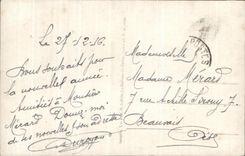 Le 27.12.16.
Bons souhaits pour
la nouvelle année
Amitiés à
Mérard Donnez moi
de vos nouvelles
Mademoiselle
Madame Mérard
7 rue Achille Sirouy 7.
Beauvais
Oise